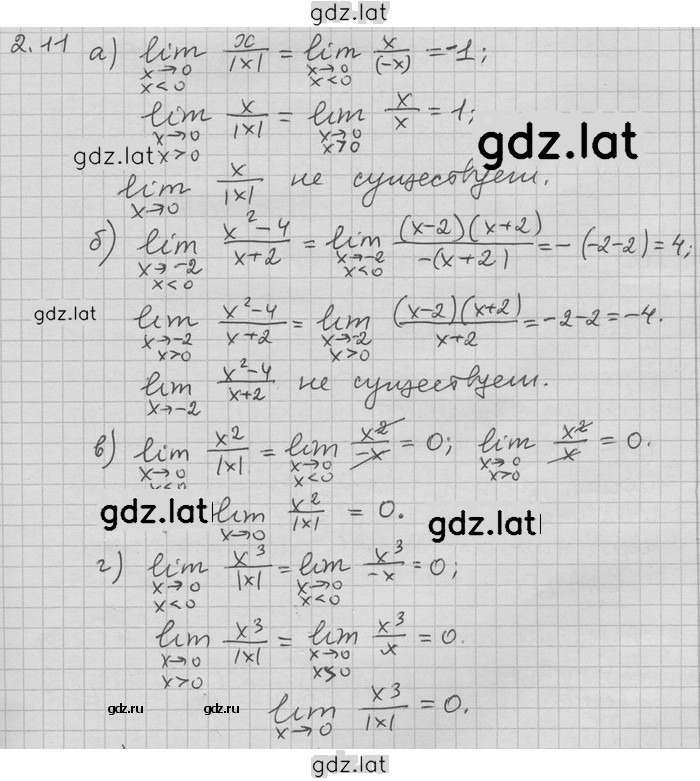 gdz.lat
2.11 а) lim x→0 x<0 x/|x| = lim x→0 x<0 x/(-x) = -1;
lim x→0 x>0 x/|x| = lim x→0 x>0 x/x = 1;
gdz.lat
gdz.lat
lim x→0 x/|x| не существует.
б) lim x→-2 x<0 (x²-4)/(x+2) = lim x→-2 x<0 (x-2)(x+2)/-(x+2) = -(-2-2) = 4;
gdz.lat
lim x→-2 x>0 (x²-4)/(x+2) = lim x→-2 x>0 (x-2)(x+2)/(x+2) = -2-2 = -4.
lim x→-2 (x²-4)/(x+2) не существует.
в) lim x→0 x<0 x²/|x| = lim x→0 x<0 x²/-x = 0; lim x→0 x>0 x²/x = 0.
gdz.lat lim x→0 x²/|x| = 0. gdz.lat
г) lim x→0 x<0 x³/|x| = lim x→0 x<0 x³/-x = 0;
lim x→0 x>0 x³/|x| = lim x→0 x>0 x³/x = 0.
gdz.ru gdz.ru lim x→0 x³/|x| = 0.
gdz.lat